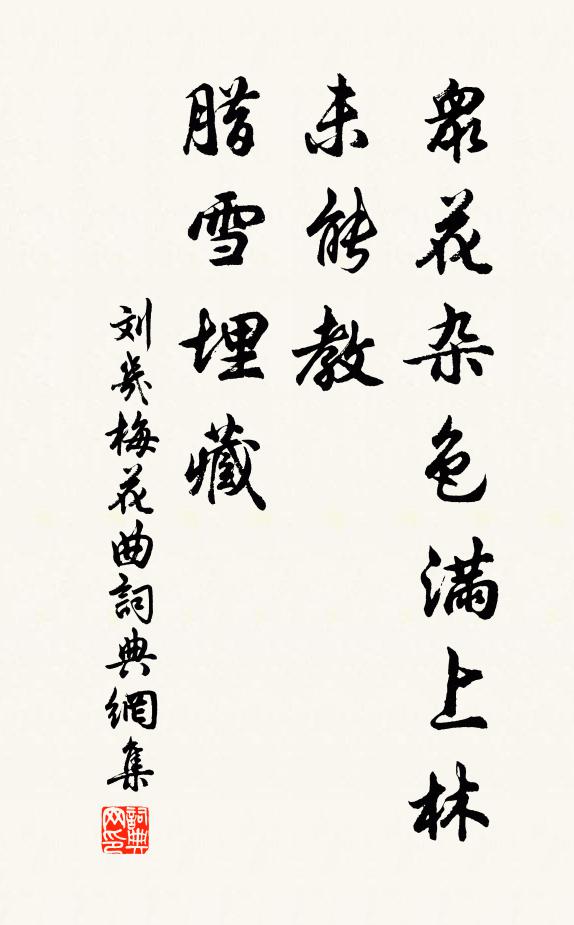 眾花杂色满上林
未能教
腊雪埋藏
刘几梅花曲詞典網集
詞典网印